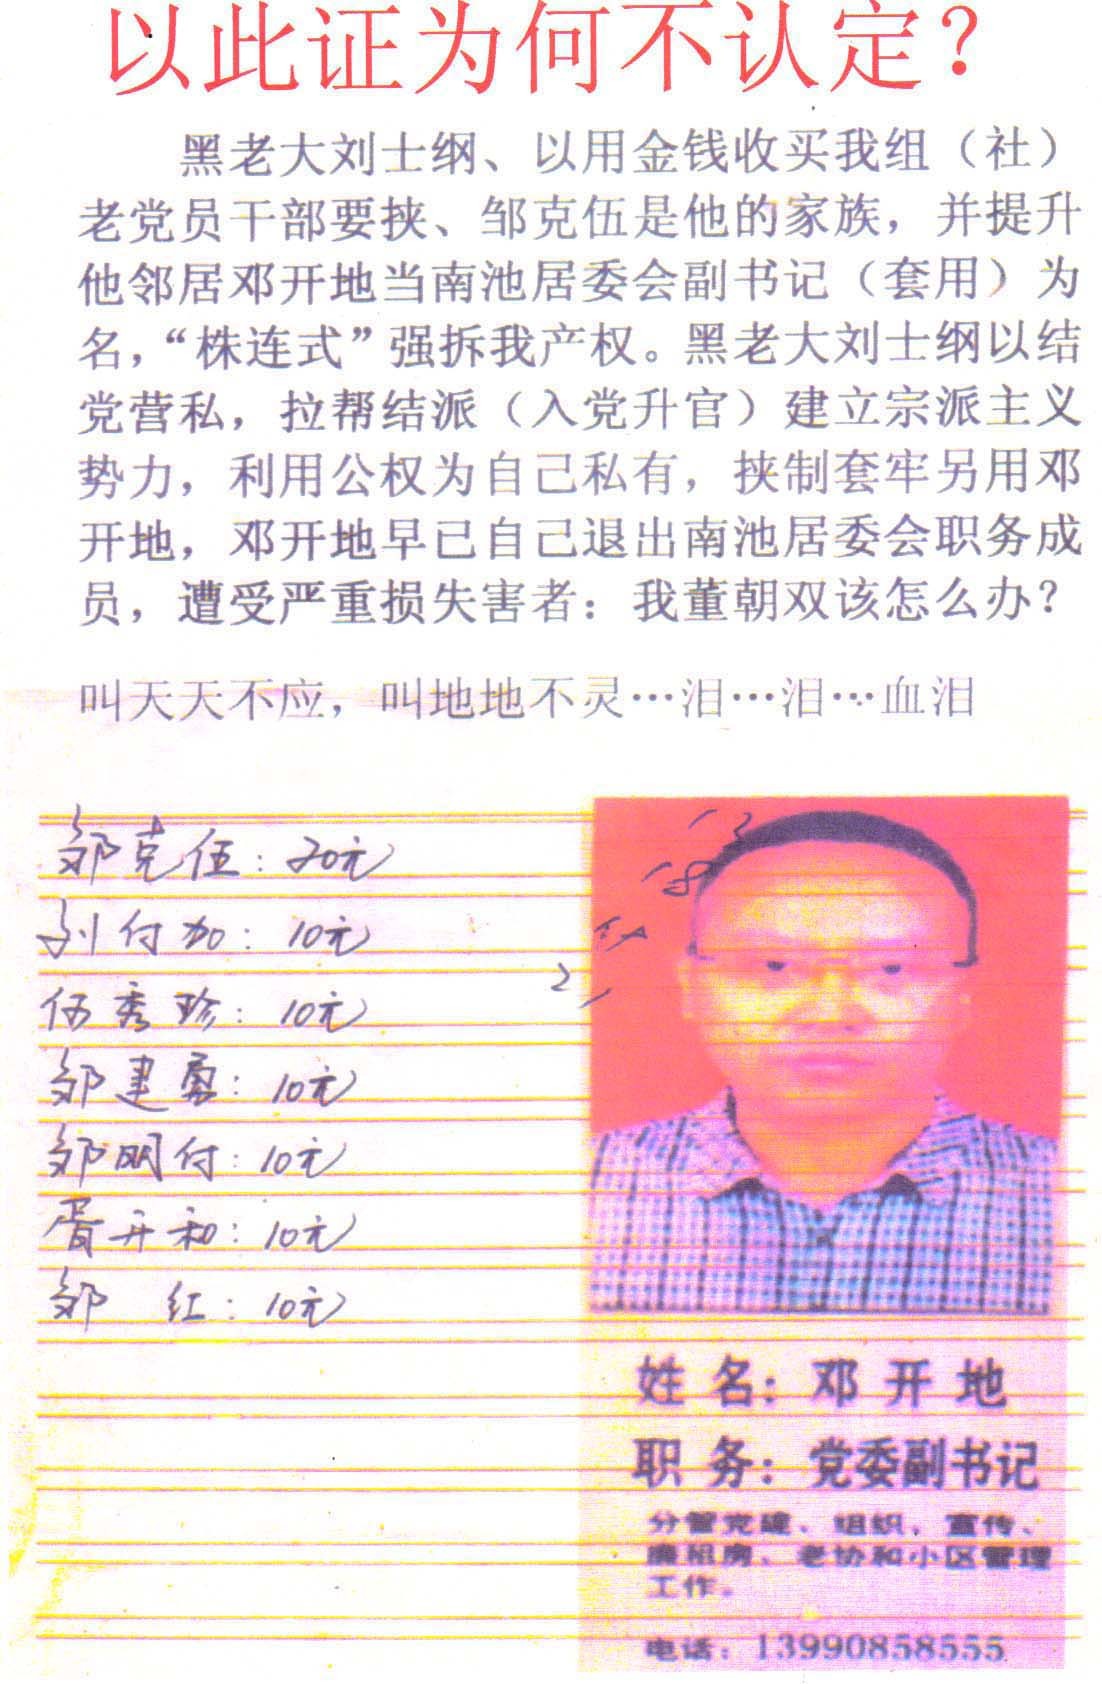 以此证为何不认定？
黑老大刘士纲、以用金钱收买我组（社）
老党员干部要挟、邹克伍是他的家族，并提升
他邻居邓开地当南池居委会副书记（套用）为
名，“株连式”强拆我产权。黑老大刘士纲以结
党营私，拉帮结派（入党升官）建立宗派主义
势力，利用公权为自己私有，挟制套牢另用邓
开地，邓开地早已自己退出南池居委会职务成
员，遭受严重损失害者：我董朝双该怎么办？
叫天天不应，叫地地不灵…泪…泪…血泪
邹克伍：20元
刘付加：10元
伍秀珍：10元
邹建勇：10元
邹明付：10元
胥开和：10元
邹 红：10元
姓 名：邓 开 地
职 务：党委副书记
分管党建、组织，宣传、
廉租房、老协和小区管理
工作。
电话：13990858555